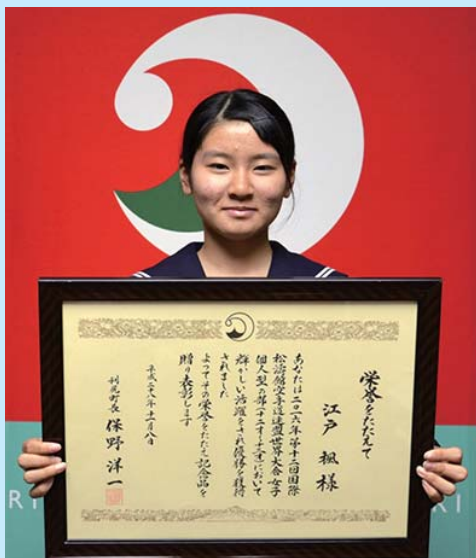 栄誉をたたえて
江戸 楓 様
あなたは二〇一六年第十二回国際
松濤館空手道連盟世界大会女子
個人型の部(十二才)において
輝かしい活躍をされ優勝を獲得
されました
よってその栄誉をたたえ記念品を
贈り表彰します
平成二十八年十一月八日
利尻町長 保野洋一
RI